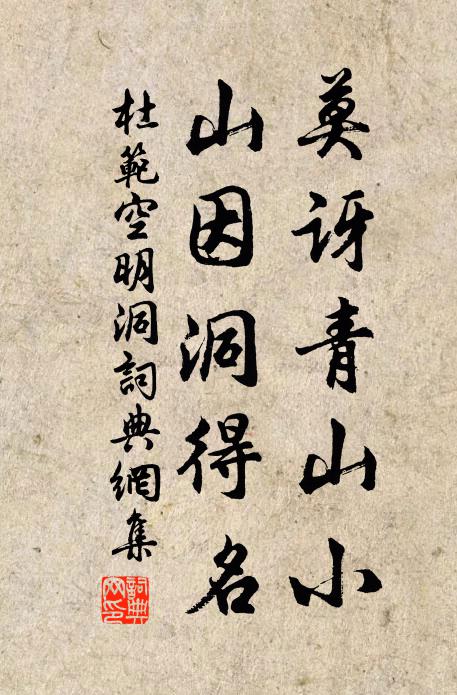 莫訝青山小
山因洞得名
杜範空明洞詞典網集
詞典